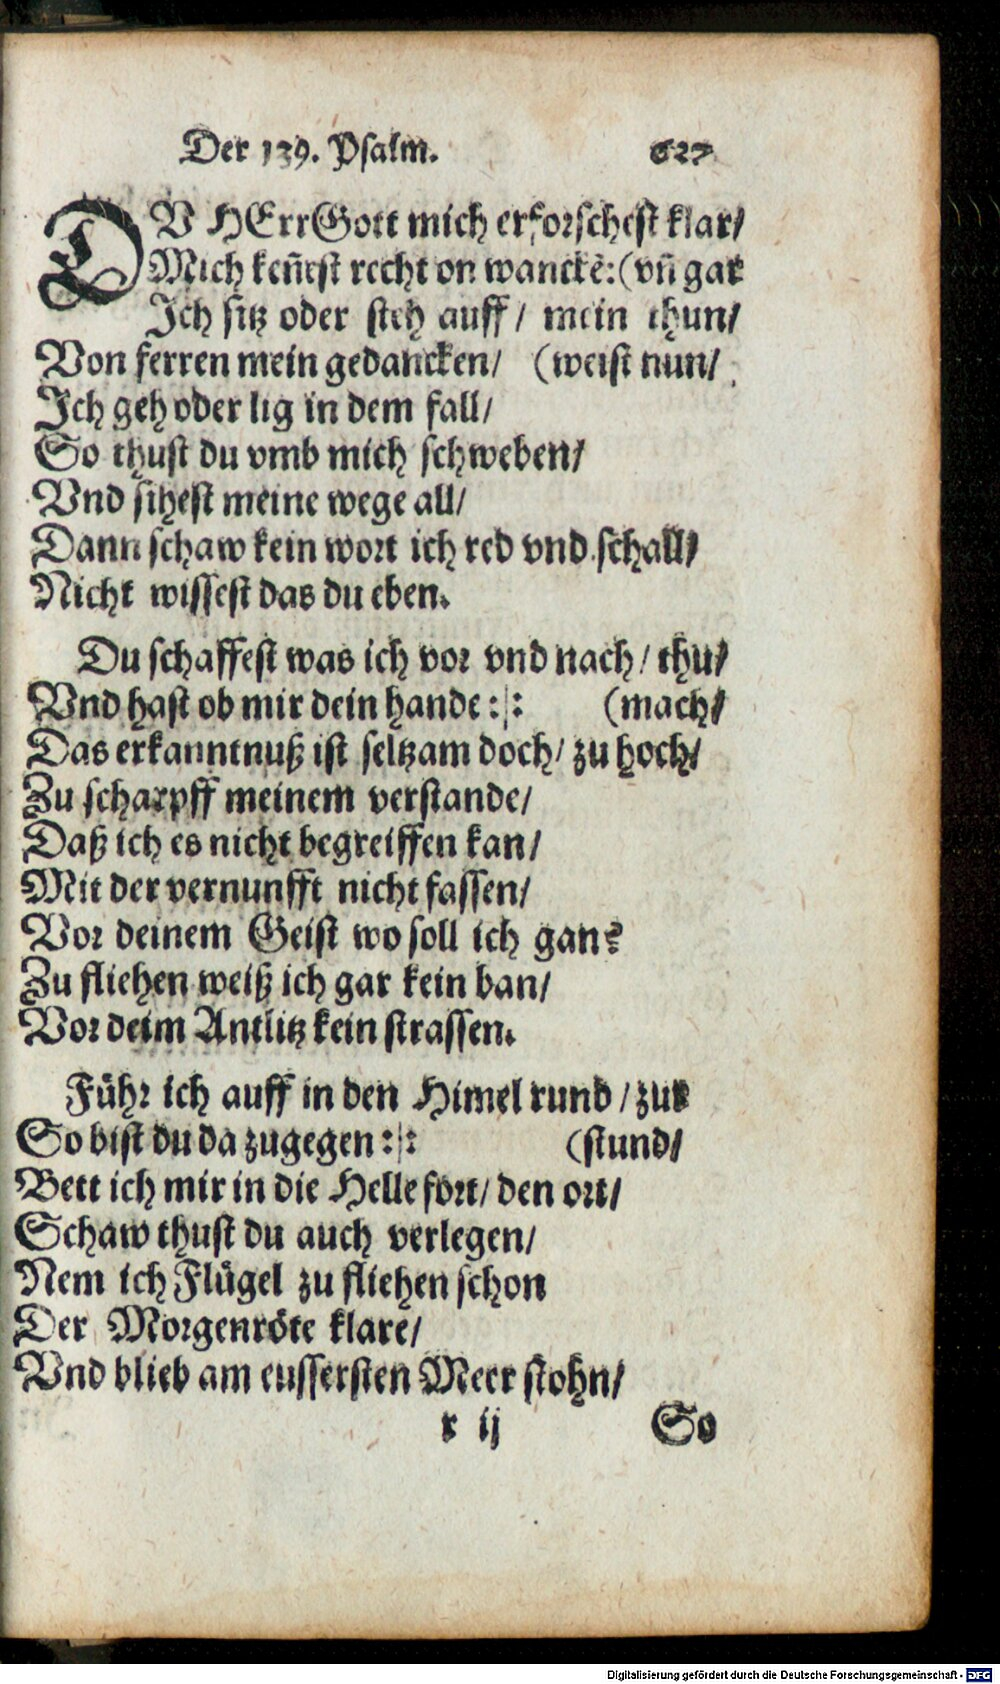 Der 139. Psalm. 627
DV HErr Gott mich erforschest klar/
Mich keñest recht on wanckẽ: (vñ gar
Ich sitz oder steh auff / mein thun/
Von ferren mein gedancken/ (weist nun/
Ich geh oder lig in dem fall/
So thust du vmb mich schweben/
Vnd sihest meine wege all/
Dann schaw kein wort ich red vnd schall/
Nicht wissest das du eben.
Du schaffest was ich vor vnd nach / thu/
Vnd hast ob mir dein hande :|: (mach/
Das erkanntnuß ist seltzam doch/ zu hoch/
Zu scharpff meinem verstande/
Daß ich es nicht begreiffen kan/
Mit der vernunfft nicht fassen/
Vor deinem Geist wo soll ich gan?
Zu fliehen weiß ich gar kein ban/
Vor deim Antlitz kein strassen.
Führ ich auff in den Himel rund / zur
So bist du da zugegen :|: (stund/
Bett ich mir in die Helle fort/ den ort/
Schaw thust du auch verlegen/
Nem ich Flügel zu fliehen schon
Der Morgenröte klare/
Vnd blieb am eussersten Meer stohn/
r ij So
Digitalisierung gefördert durch die Deutsche Forschungsgemeinschaft - DFG